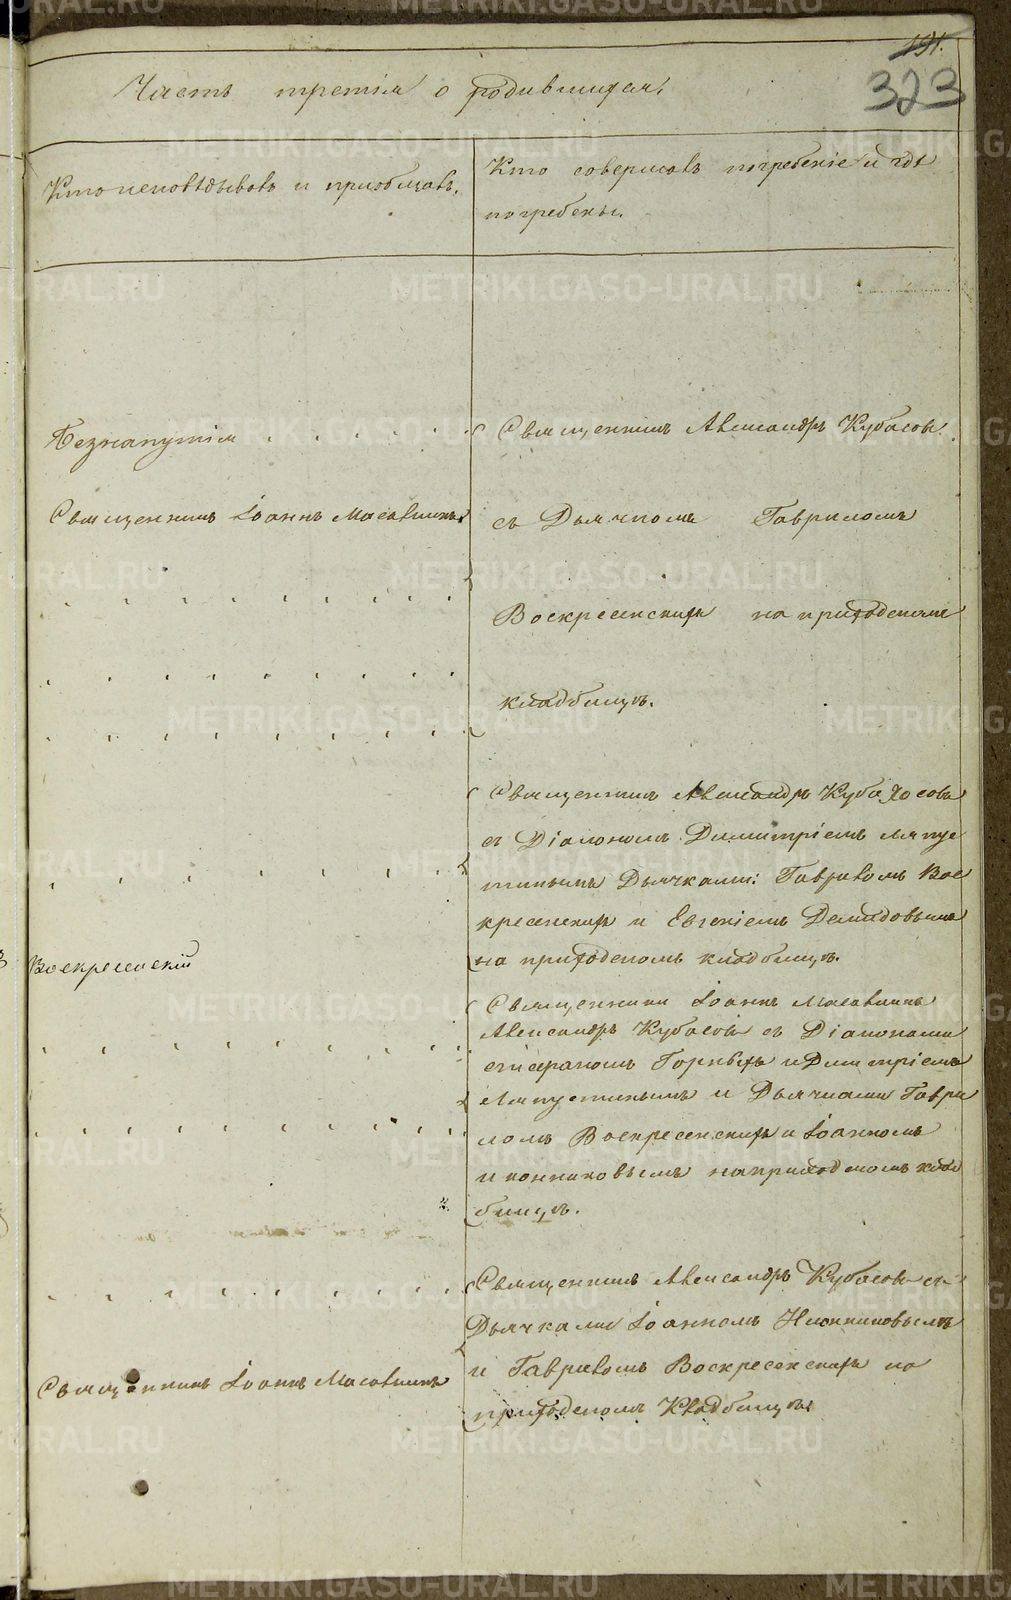 191.
323
Часть третія о родившихся,
Кто исповѣдывалъ и пріобщалъ.
Кто совершалъ погребеніе и гдѣ
погребены.
Священникъ Александръ Кубасовъ
Священникъ Іоаннъ Масловскихъ
съ Дьячкомъ Гавриломъ
Воскресенскимъ на приходскомъ
кладбищѣ.
Священникъ Александръ
съ Діакономъ Димитріемъ Ляпус
тинымъ Дьячками: Гавриломъ Вос
кресенскимъ и Евгеніемъ Демидовымъ
на приходскомъ кладбищѣ.
Воскресенскій
Священники Іоаннъ
Александръ Кубасовъ съ Діаконами
и Димитріемъ
Ляпустинымъ и Дьячками Гаври
ломъ Воскресенскимъ и Іоанномъ
Иконниковымъ на приходскомъ клад
бищѣ.
Священникъ Александръ Кубасовъ съ
Дьячками Іоанномъ Иконниковымъ
и Гавриломъ Воскресенскимъ на
приходскомъ Кладбищѣ
Священникъ Іоаннъ
METRIKI.GASO-URAL.RU